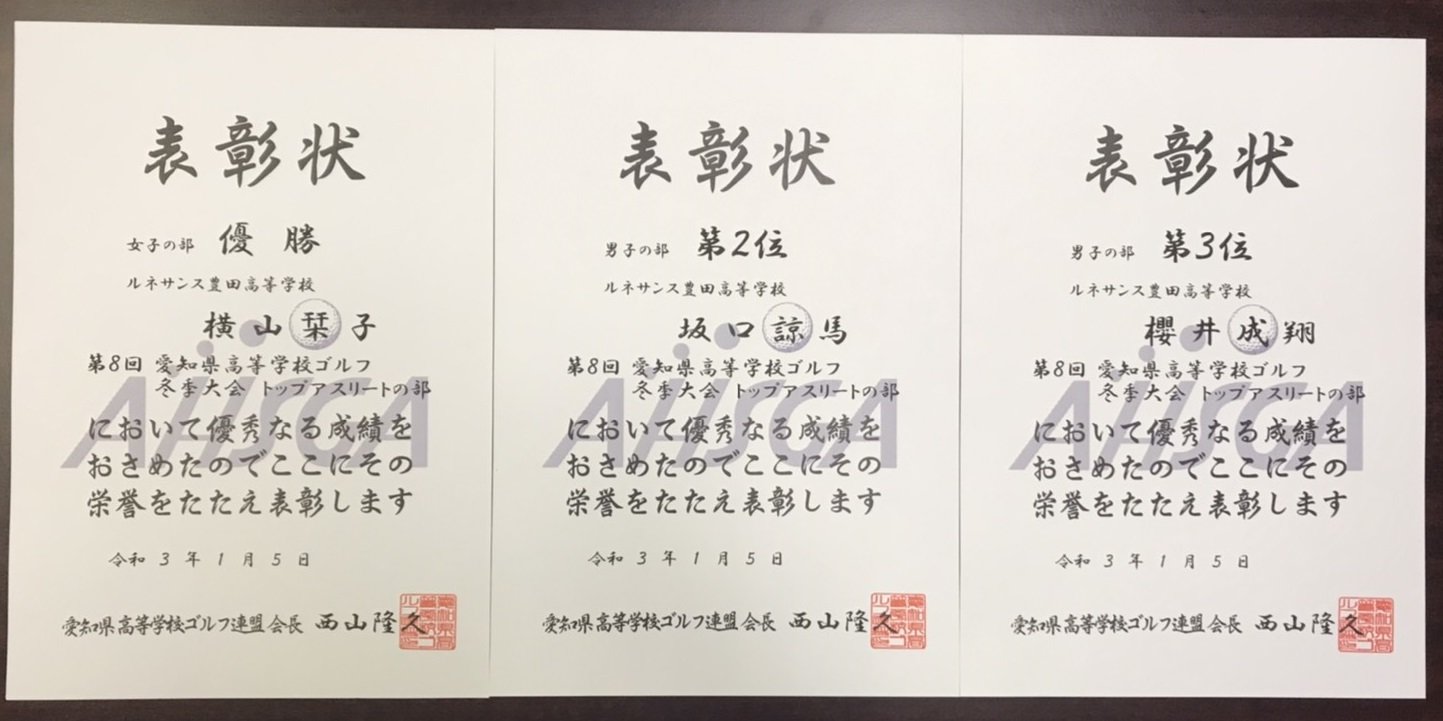 表彰状
女子の部 優勝
ルネサンス豊田高等学校
横山栞子
第8回 愛知県高等学校ゴルフ
冬季大会 トップアスリートの部
において優秀なる成績を
おさめたのでここにその
栄誉をたたえ表彰します
令和3年1月5日
愛知県高等学校ゴルフ連盟会長 西山隆久
AHSGA
表彰状
男子の部 第2位
ルネサンス豊田高等学校
坂口諒馬
第8回 愛知県高等学校ゴルフ
冬季大会 トップアスリートの部
において優秀なる成績を
おさめたのでここにその
栄誉をたたえ表彰します
令和3年1月5日
愛知県高等学校ゴルフ連盟会長 西山隆久
AHSGA
表彰状
男子の部 第3位
ルネサンス豊田高等学校
櫻井成翔
第8回 愛知県高等学校ゴルフ
冬季大会 トップアスリートの部
において優秀なる成績を
おさめたのでここにその
栄誉をたたえ表彰します
令和3年1月5日
愛知県高等学校ゴルフ連盟会長 西山隆久
AHSGA